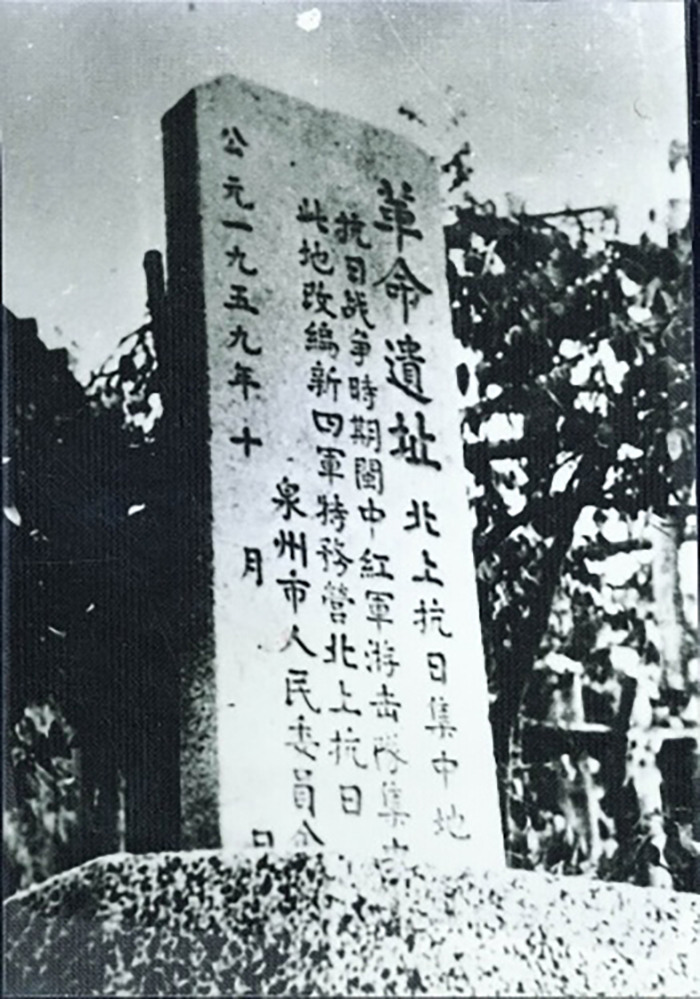 革命遺址 北上抗日集中地
抗日战争時期閩中紅軍游击隊集
此地改編新四軍特務營北上抗日
泉州市人民委員会
公元一九五九年十 月 日